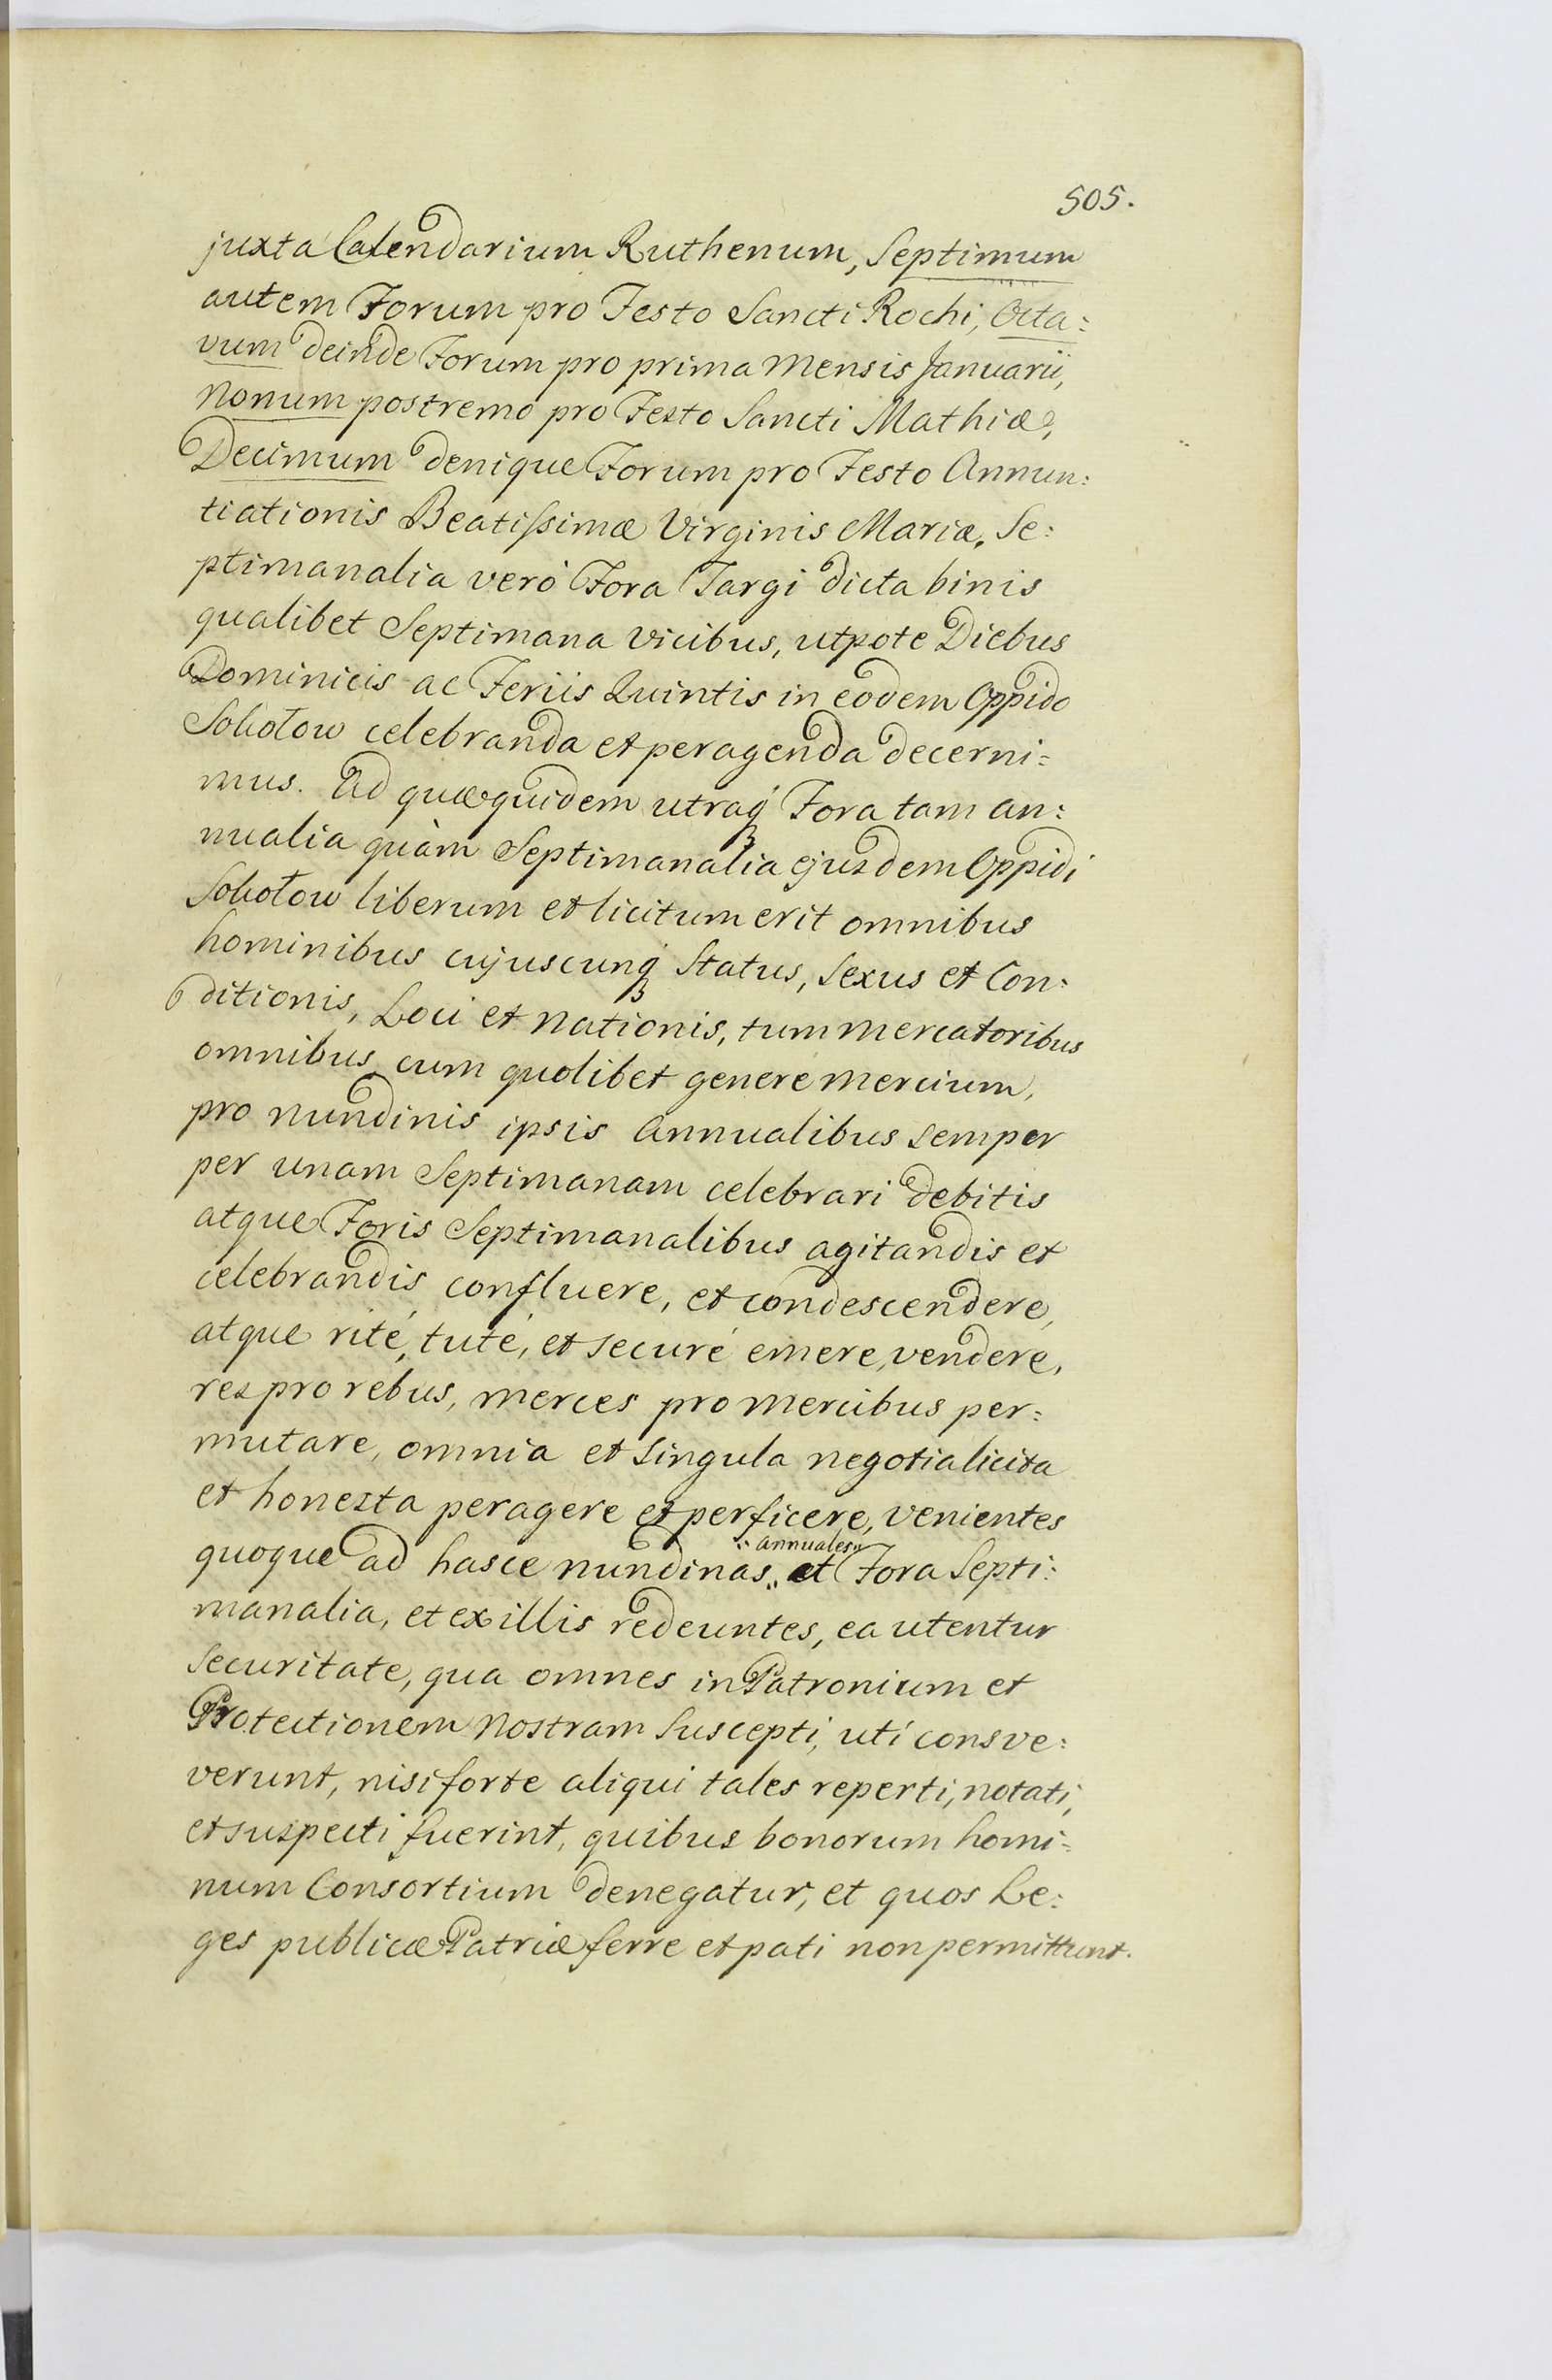 505.
juxta Calendarium Ruthenum, Septimum
autem Forum pro Festo Sancti Rochi, Octa:
vum deinde Forum pro prima Mensis Januarii,
Nonum postremo pro Festo Sancti Mathiæ,
Decimum denique Forum pro Festo Annun:
tiationis Beatissimæ Virginis Mariæ. Se:
ptimanalia veró Fora Targi dicta binis
qualibet Septimana vicibus, utpote Diebus
Dominicis ac Feriis Quintis in eodem Oppido
Sokołow celebranda et peragenda decerni:
mus. Ad quæ quidem utraq́ Fora tam an:
nualia quàm Septimanalia ejusdem Oppidi
Sokołow liberum et licitum erit omnibus
hominibus cujuscunq́ Status, Sexus et Con:
ditionis, Loci et Nationis, tum Mercatoribus
omnibus cum quolibet genere Mercium,
pro Nundinis ipsis Annualibus semper
per unam Septimanam celebrari debitis
atque Foris Septimanalibus agitandis et
celebrandis confluere, et condescendere,
atque rité, tuté, et securé emere, vendere,
res pro rebus, Merces pro Mercibus per:
mutare, omnia et singula negotia licita
et honesta peragere et perficere, venientes
quoque ad hasce nundinas annuales et Fora Septi:
manalia, et ex illis redeuntes, ea utentur
securitate, qua omnes in Patronium et
Protectionem Nostram suscepti, uti consve:
verunt, nisi forte aliqui tales reperti, notati,
et suspecti fuerint, quibus bonorum homi:
num Consortium denegatur, et quos Le:
ges publicæ Patriæ ferre et pati non permittunt.